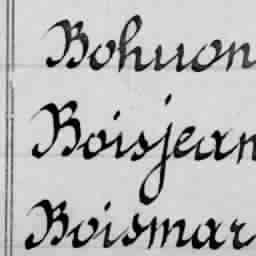 Bohuon
Boisjean
Boismar